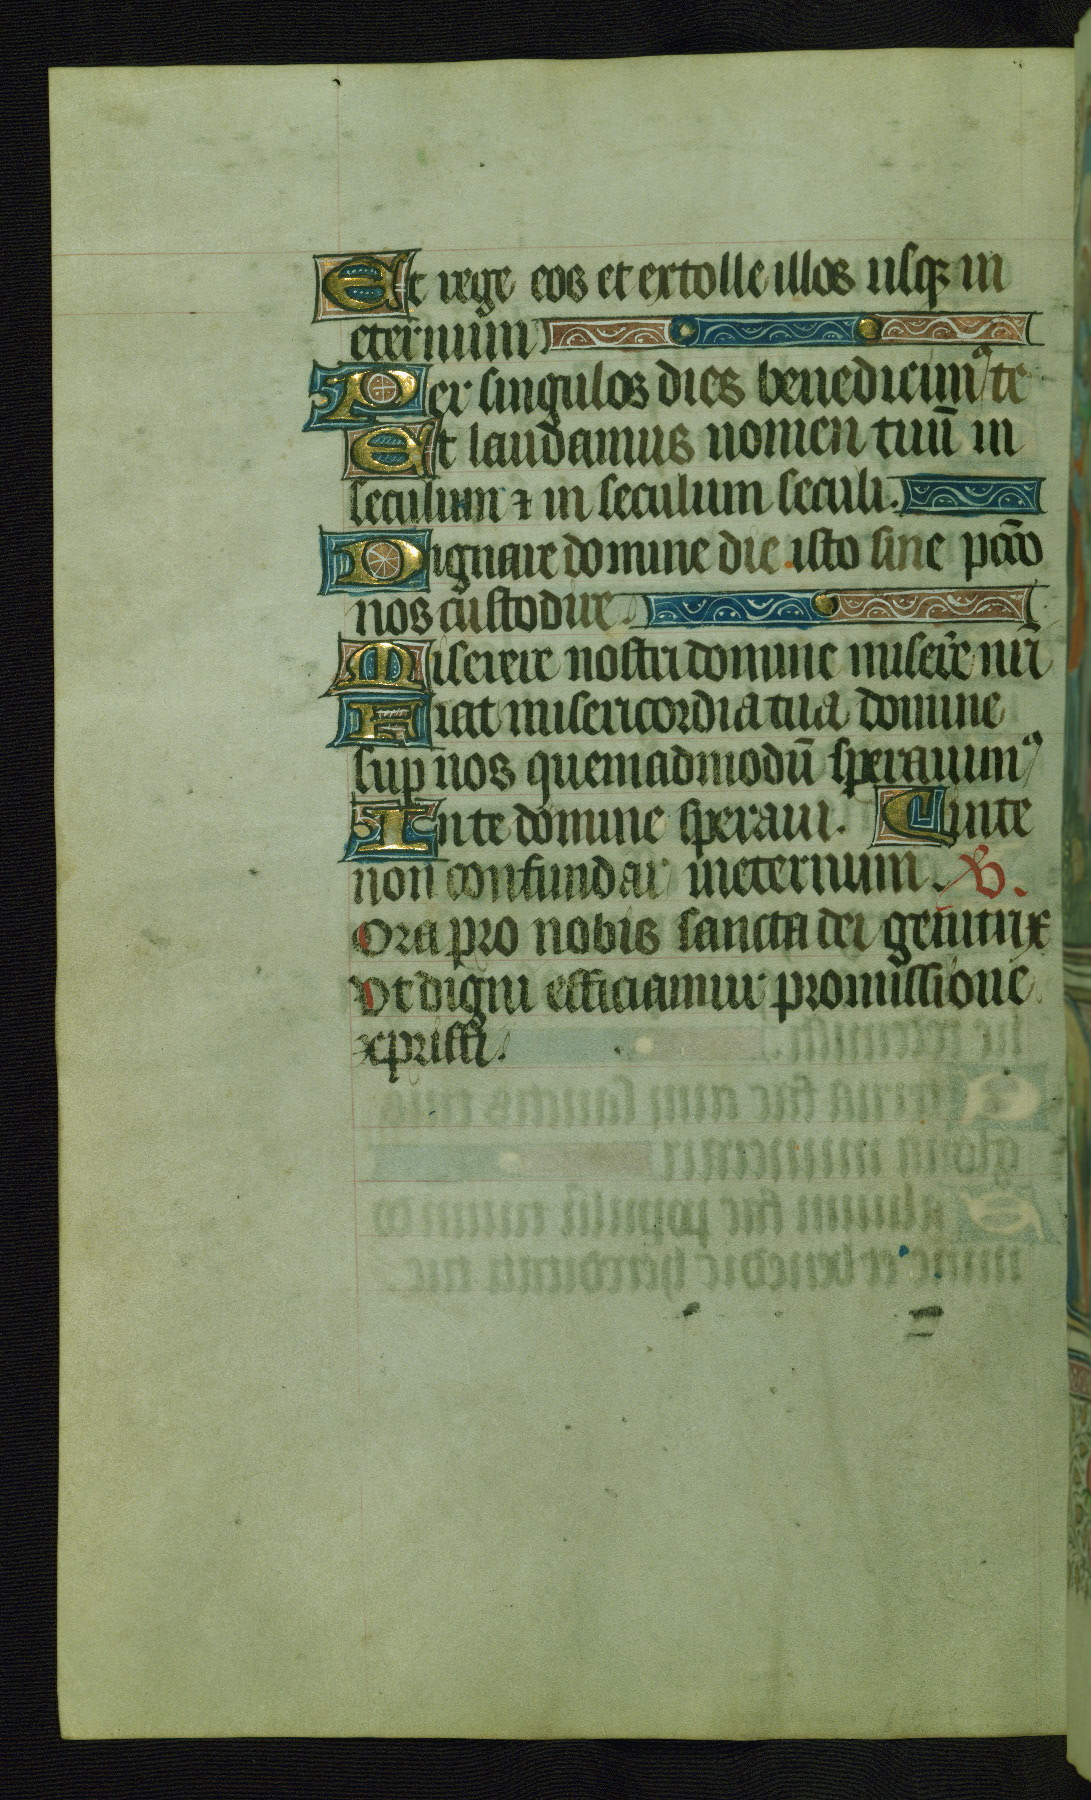 Et rege eos et extolle illos usqꝫ in
eternum
Per singulos dies benedicimꝰ te
Et laudamus nomen tuū in
seculum ⁊ in seculum seculi.
Dignare domine die isto sine pcc̄o
nos custodire.
Miserere nostri domine misere̅ nr̅i
Fiat misericordia tua domine
sup nos quemadmodū sperauimꝰ
In te domine speraui. Uinte
non confundar ineternum. ℟.
Ora pro nobis sancta dei genitrix
Vt digni efficiamur promissione
xpristi.